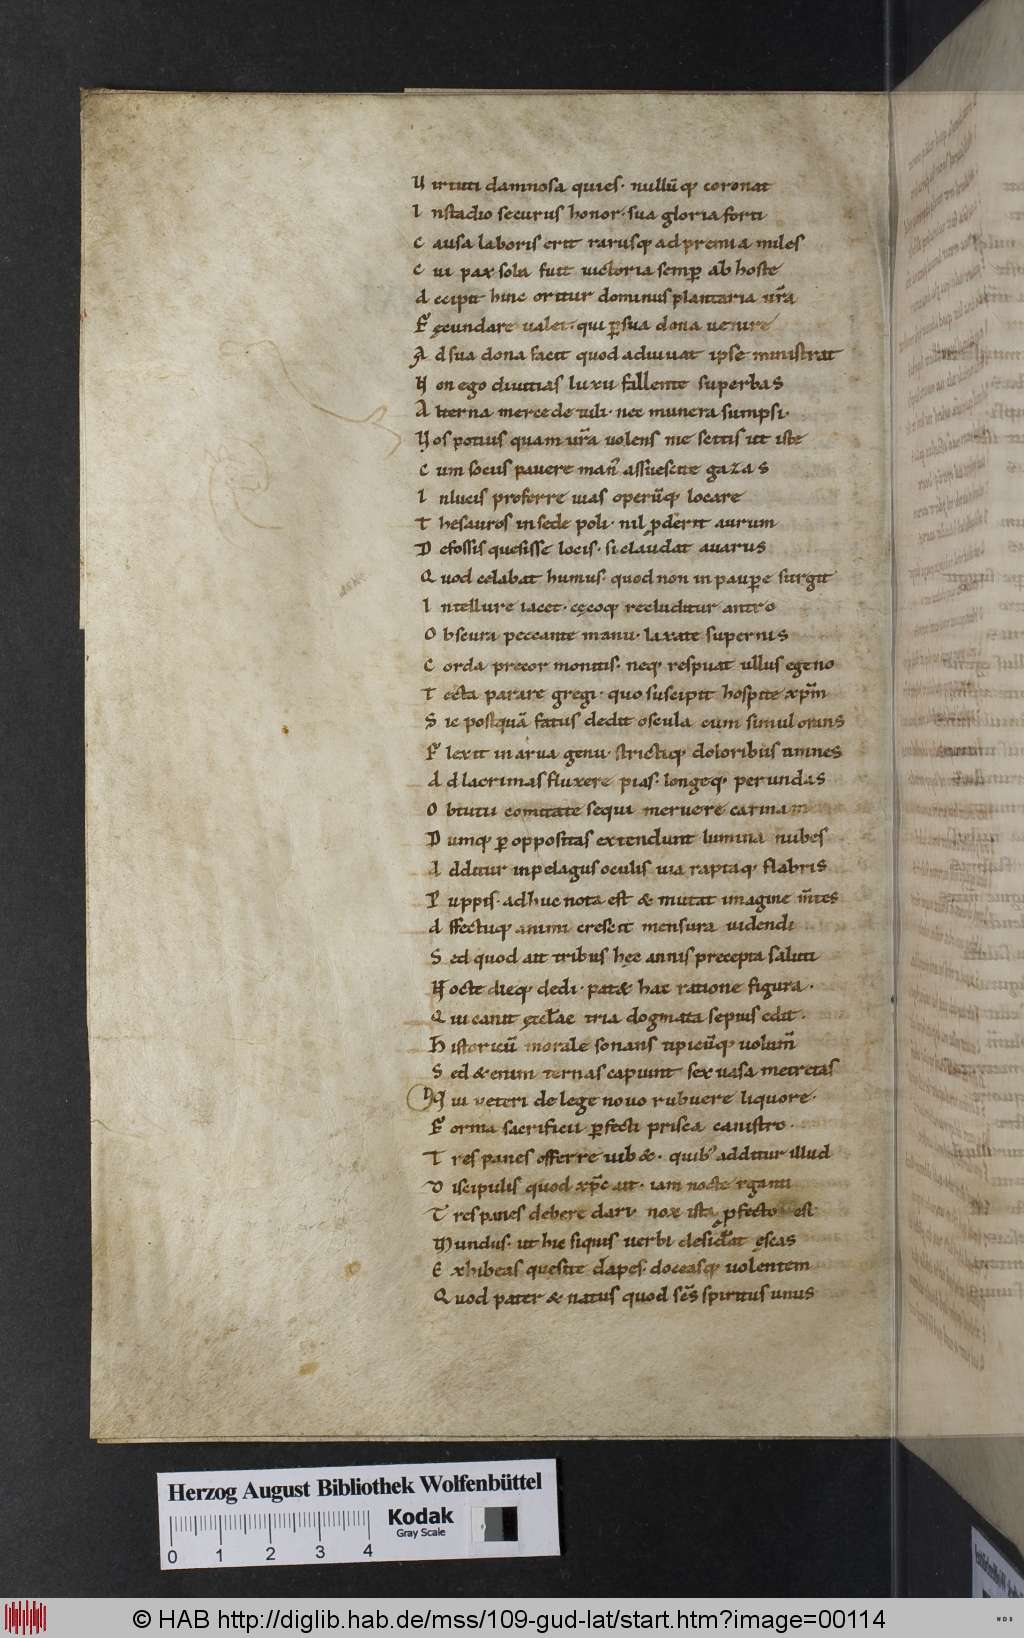 V irtuti damnosa quies· nullũq; coronat
I nstadio securus honor· sua gloria forti
C ausa laboris erit rarusq; ad premia miles
C ui pax sola fuit uictoria semꝑ ab hoste
d ecipit hinc oritur dominus plantaria ur̃a
F ęcundare ualet· qui ꝑ sua dona uenire
A d sua dona facit quod adiuuat ipse ministrat
N on ego diuitias luxu fallente superbas
A lterna mercede tuli· nec munera sumpsi·
N os potius quam ur̃a uolens me scitis ut iste
C um sociis pauere man᷒ assuescite gazas
I nlucis proferre uias operũq; locare
T hesauros in sede poli· nil ꝓderit aurum
D efossis quesisse locis· si claudat auarus
Q uod celabat humus· quod non in pauꝑe surgit
I ntellure iacet· cęcoq; recluditur antro
O bscura peccante manu· laxate supernis
C orda precor monitis· neq; respuat ullus egeno
T ecta parare gregi· quo suscipit hospite xp̃m
S ic postquã fatus dedit oscula cum simul orans
F lexit in arua genu· strictiq; doloribus amnes
A d lacrimas fluxere pias· longeq; per undas
O btutu comitate sequi meruere carinam
D umq; ꝑ oppositas extendunt lumina nubes
A dditur inpelagus oculis uia raptaq; flabris
P uppis· adhuc nota est & mutat imagine m̃tes
A ffectuq; animi crescit mensura uidendi
S ed quod ait tribus hęc annis precepta saluti
N octe dieq; dedi· pat& hac ratione figura·
Q ui canit ęcclae tria dogmata sepius edit·
H istoricũ morale sonans tipicũq; uolum̃
S ed & enim ternas capiunt sex uasa metretas
Q ui ueteri de lege nouo rubuere liquore·
F orma sacrificii ꝑfecti prisca canistro·
T res panes offerre iub&· quib; additur illud
D iscipulis quod xp̃c ait· iam nocte rganti
T res panes debere dari· nox ista ꝓfecto est
M undus· ut hic siquis uerbi desid̃at ęscas
E xhibeas quesite dapes· doceasq; uolentem
Q uod pater & natus quod sc̃s spiritus unus
Herzog August Bibliothek Wolfenbüttel
Kodak
Gray Scale
0 1 2 3 4
© HAB http://diglib.hab.de/mss/109-gud-lat/start.htm?image=00114